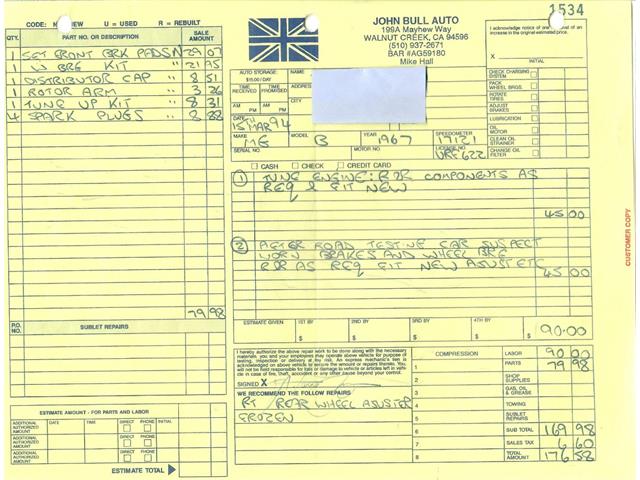 CODE: N = NEW U = USED R = REBUILT
QTY. PART NO. OR DESCRIPTION SALE AMOUNT
1 SET FRONT BRK PADS N 29 07
1 W BRG KIT " 21 95
1 DISTRIBUTOR CAP " 8 51
1 ROTOR ARM " 3 26
1 TUNE UP KIT " 8 31
4 SPARK PLUGS " 8 88
79 98
P.O. NO. SUBLET REPAIRS
ESTIMATE AMOUNT - FOR PARTS AND LABOR
ADDITIONAL AUTHORIZED AMOUNT DATE TIME DIRECT PHONE INITIAL
ADDITIONAL AUTHORIZED AMOUNT DIRECT PHONE
ADDITIONAL AUTHORIZED AMOUNT DIRECT PHONE
ESTIMATE TOTAL
JOHN BULL AUTO
199A Mayhew Way
WALNUT CREEK, CA 94596
(510) 937-2671
BAR #AG59180
Mike Hall
1534
I acknowledge notice of and oral approval of an increase in the original estimated price.
X
INITIAL
AUTO STORAGE: $15.00 / DAY
NAME
TIME RECEIVED TIME PROMISED ADDRESS
AM PM AM PM
CITY
DATE
15TH MAR 94
MAKE MG MODEL B YEAR 1967 SPEEDOMETER 7121
SERIAL NO. MOTOR NO. LICENSE NO. VRE622
CHECK CHARGING SYSTEM
PACK WHEEL BRGS.
ROTATE TIRES
ADJUST BRAKES
LUBRICATION
OIL MOTOR
CLEAN OIL STRAINER
CHANGE OIL FILTER
CASH CHECK CREDIT CARD
1 TUNE ENGINE: R&R COMPONENTS AS
REQ & FIT NEW
45 00
2 AFTER ROAD TESTING CAR SUSPECT
WORN BRAKES AND WHEEL BRG
R&R AS REQ FIT NEW ADJUST ETC
45 00
ESTIMATE GIVEN 1ST BY $ 2ND BY $ 3RD BY $ 4TH BY $
90.00
CUSTOMER COPY
I hereby authorize the above repair work to be done along with the necessary
materials. you and your employees may operate above vehicle for purpose of
testing, inspection or delivery at my risk. An express mechanic's lien is
acknowledged on above vehicle to secure the amount or repairs thereto. You
will not be held responsible for loss or damage to vehicle or articles left in vehi-
cle in case of fire, theft, accident or any other cause beyond your control.
SIGNED X
WE RECOMMEND THE FOLLOW REPAIRS
RT / REAR WHEEL ADJUSTER
FROZEN
COMPRESSION
1
2
3
4
5
6
7
8
LABOR 90 00
PARTS 79 98
SHOP SUPPLIES
GAS, OIL & GREASE
TOWING
SUBLET REPAIRS
SUB TOTAL 169 98
SALES TAX 6 60
TOTAL AMOUNT 176 58